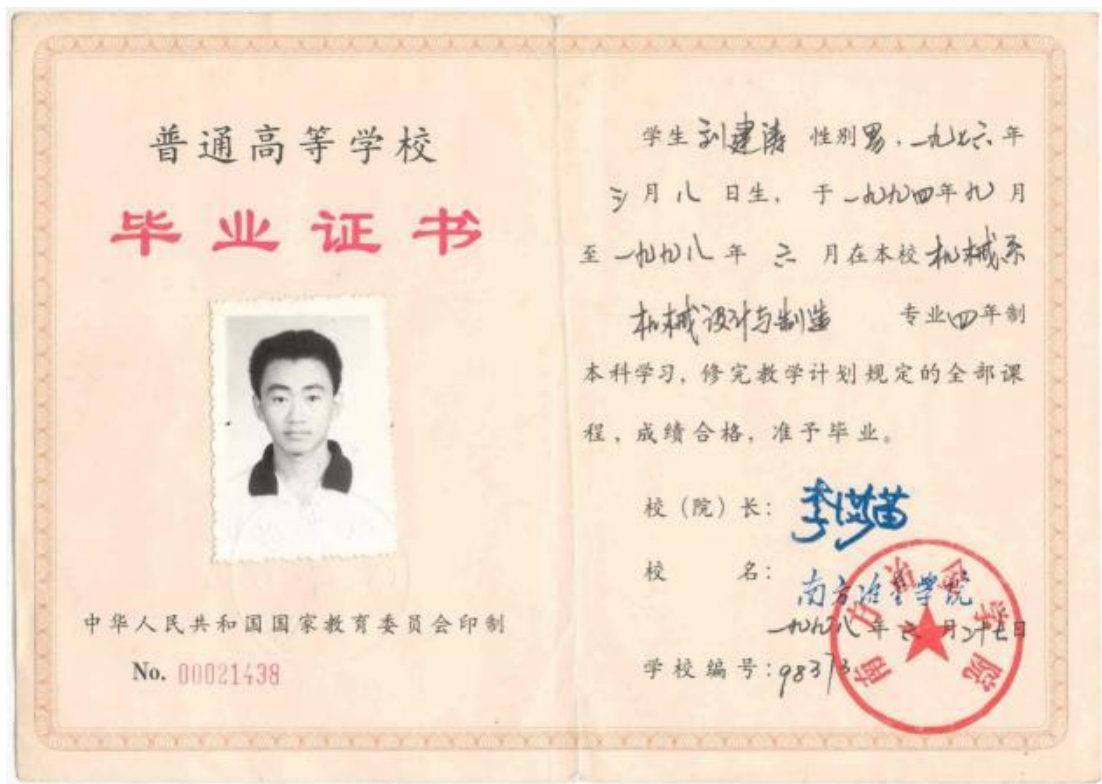 普通高等学校
毕业证书
中华人民共和国国家教育委员会印制
No. 00021438
学生 刘建涛 性别 男,一九七六年
三月八日生,于一九九四年九月
至一九九八年 六 月在本校 机械系
机械设计与制造 专业四年制
本科学习,修完教学计划规定的全部课
程,成绩合格,准予毕业。
校(院)长:
校 名:南方冶金学院
一九九八年六月二十七日
学校编号:98373
南方冶金学院